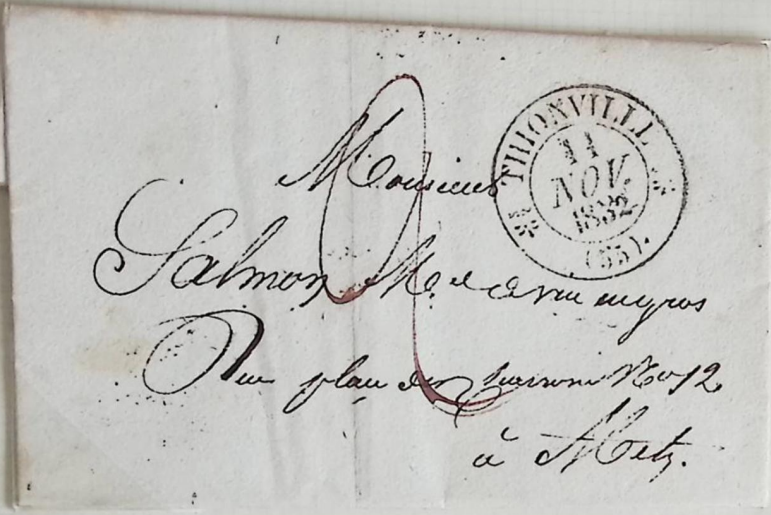 THIONVILLE
11
NOV.
1832
(55).
Monsieur
Salmon Md de vin en gros
Rue No 12
à Metz.